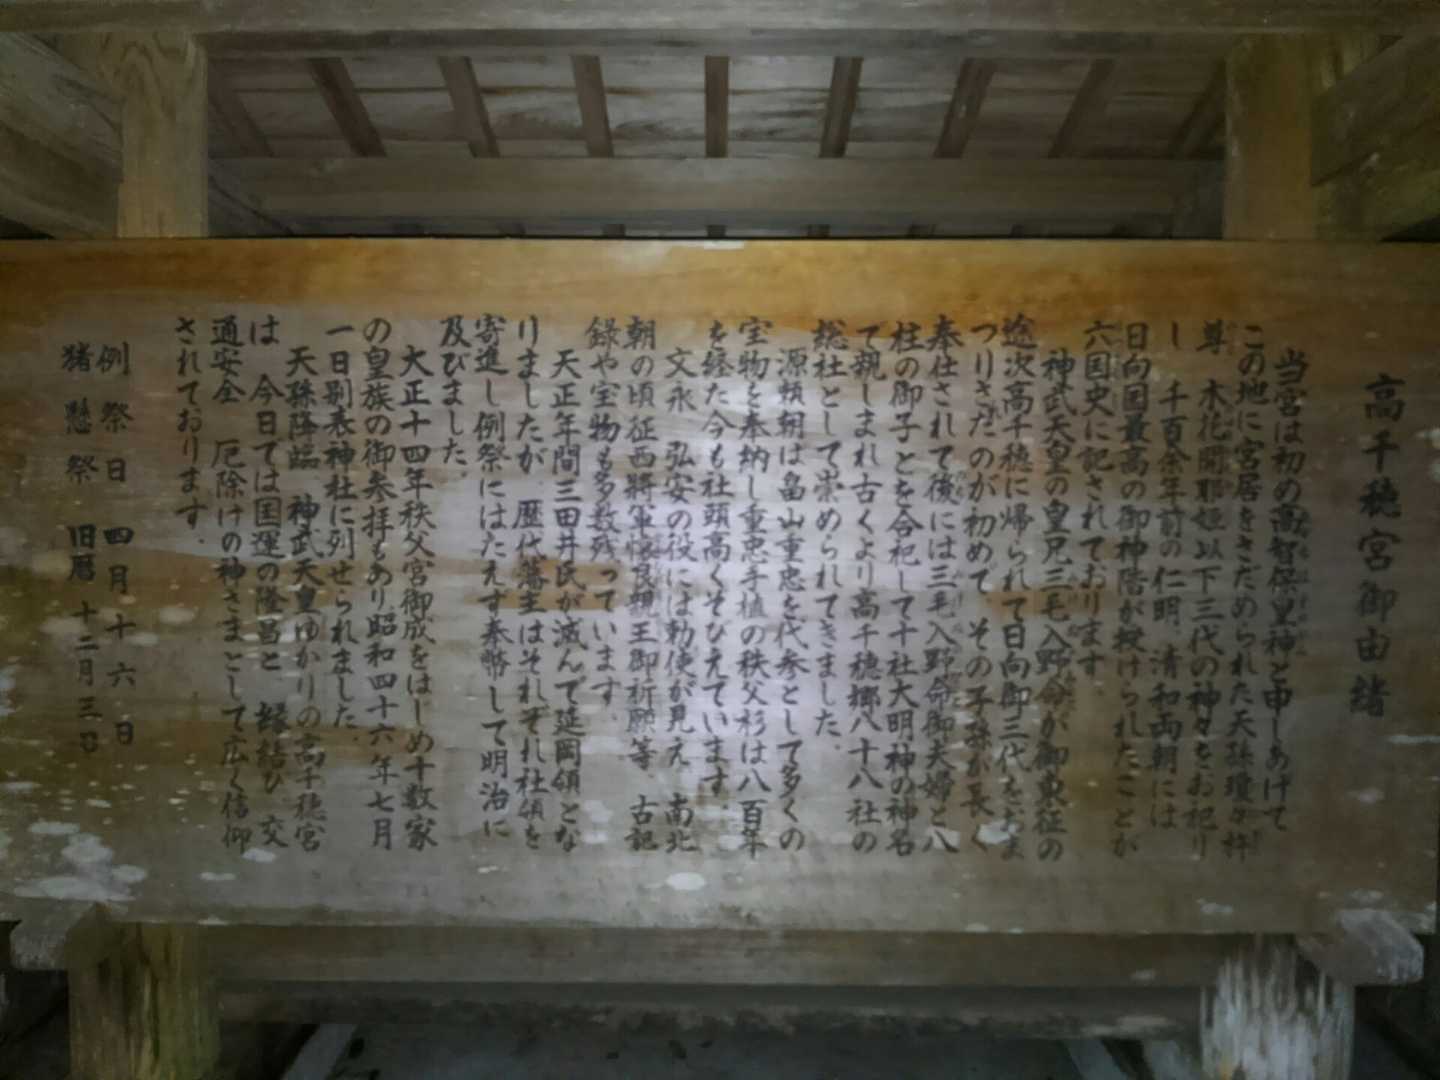 高千穂宮御由緒
当宮は初め高智保皇神と申しあげて
この地に宮居をさだめられた天孫瓊々杵
尊 木花開耶姫以下三代の神々をお祀り
し 千百余年前の仁明、清和両朝には
日向国最高の御神階が授けられたことが
六国史に記されております.
神武天皇の皇兄三毛入野命が御東征の
途次高千穂に帰られて日向御三代をおま
つりさだのが初めて その子孫が長く
奉仕されて後には三毛入野命御夫婦と八
柱の御子とを合祀して十社大明神の神名
て親しまれ古くより高千穂郷八十八社の
総社として崇められてきました.
源頼朝は畠山重忠を代参として多くの
宝物を奉納し重忠手植の秩父杉は八百年
を経た今も社頭高くそびえています.
文永 弘安の役には勅使が見え 南北
朝の頃征西将軍懐良親王御祈願等、古記
録や宝物も多数残っています.
天正年間三田井氏が滅んで延岡領とな
りましたが 歴代藩主はそれぞれ社領を
寄進し例祭にはたえず奉幣して明治に
及びました.
大正十四年秩父宮御成をはじめ十数家
の皇族の御参拝もあり昭和四十六年七月
一日別表神社に列せられました.
天孫降臨、神武天皇ゆかりの高千穂宮
は 今日ては国運の隆昌と 縁結び 交
通安全 厄除けの神さまとして広く信仰
されております.
例祭日 四月十六日
猪懸祭 旧暦十二月三日